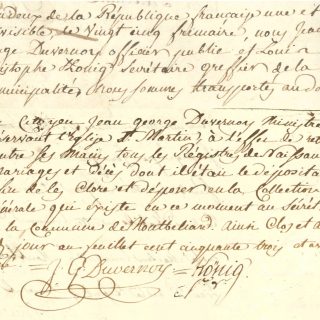 deux de la République française une et
visible, le Vingt cinq frimaire, nous Jean
Duvernoy officier public et Louis
stophe König Secrétaire greffier de la
municipalité, nous sommes transportés au do
Citoyen Jean george Duvernoy ministre
servant l'Eglise St Martin, à l'effet de
entre ses mains tous les Régistres de Naissan
mariages et Décès dont il était le dépositai
fin de les Clore et déposer en la Collection
générale qui existe en ce moment au Secrét
de la Commune de Montbeliard. Ainsi Clos et a
jour au feuillet cent quarante trois et
J. G. Duvernoy = König.